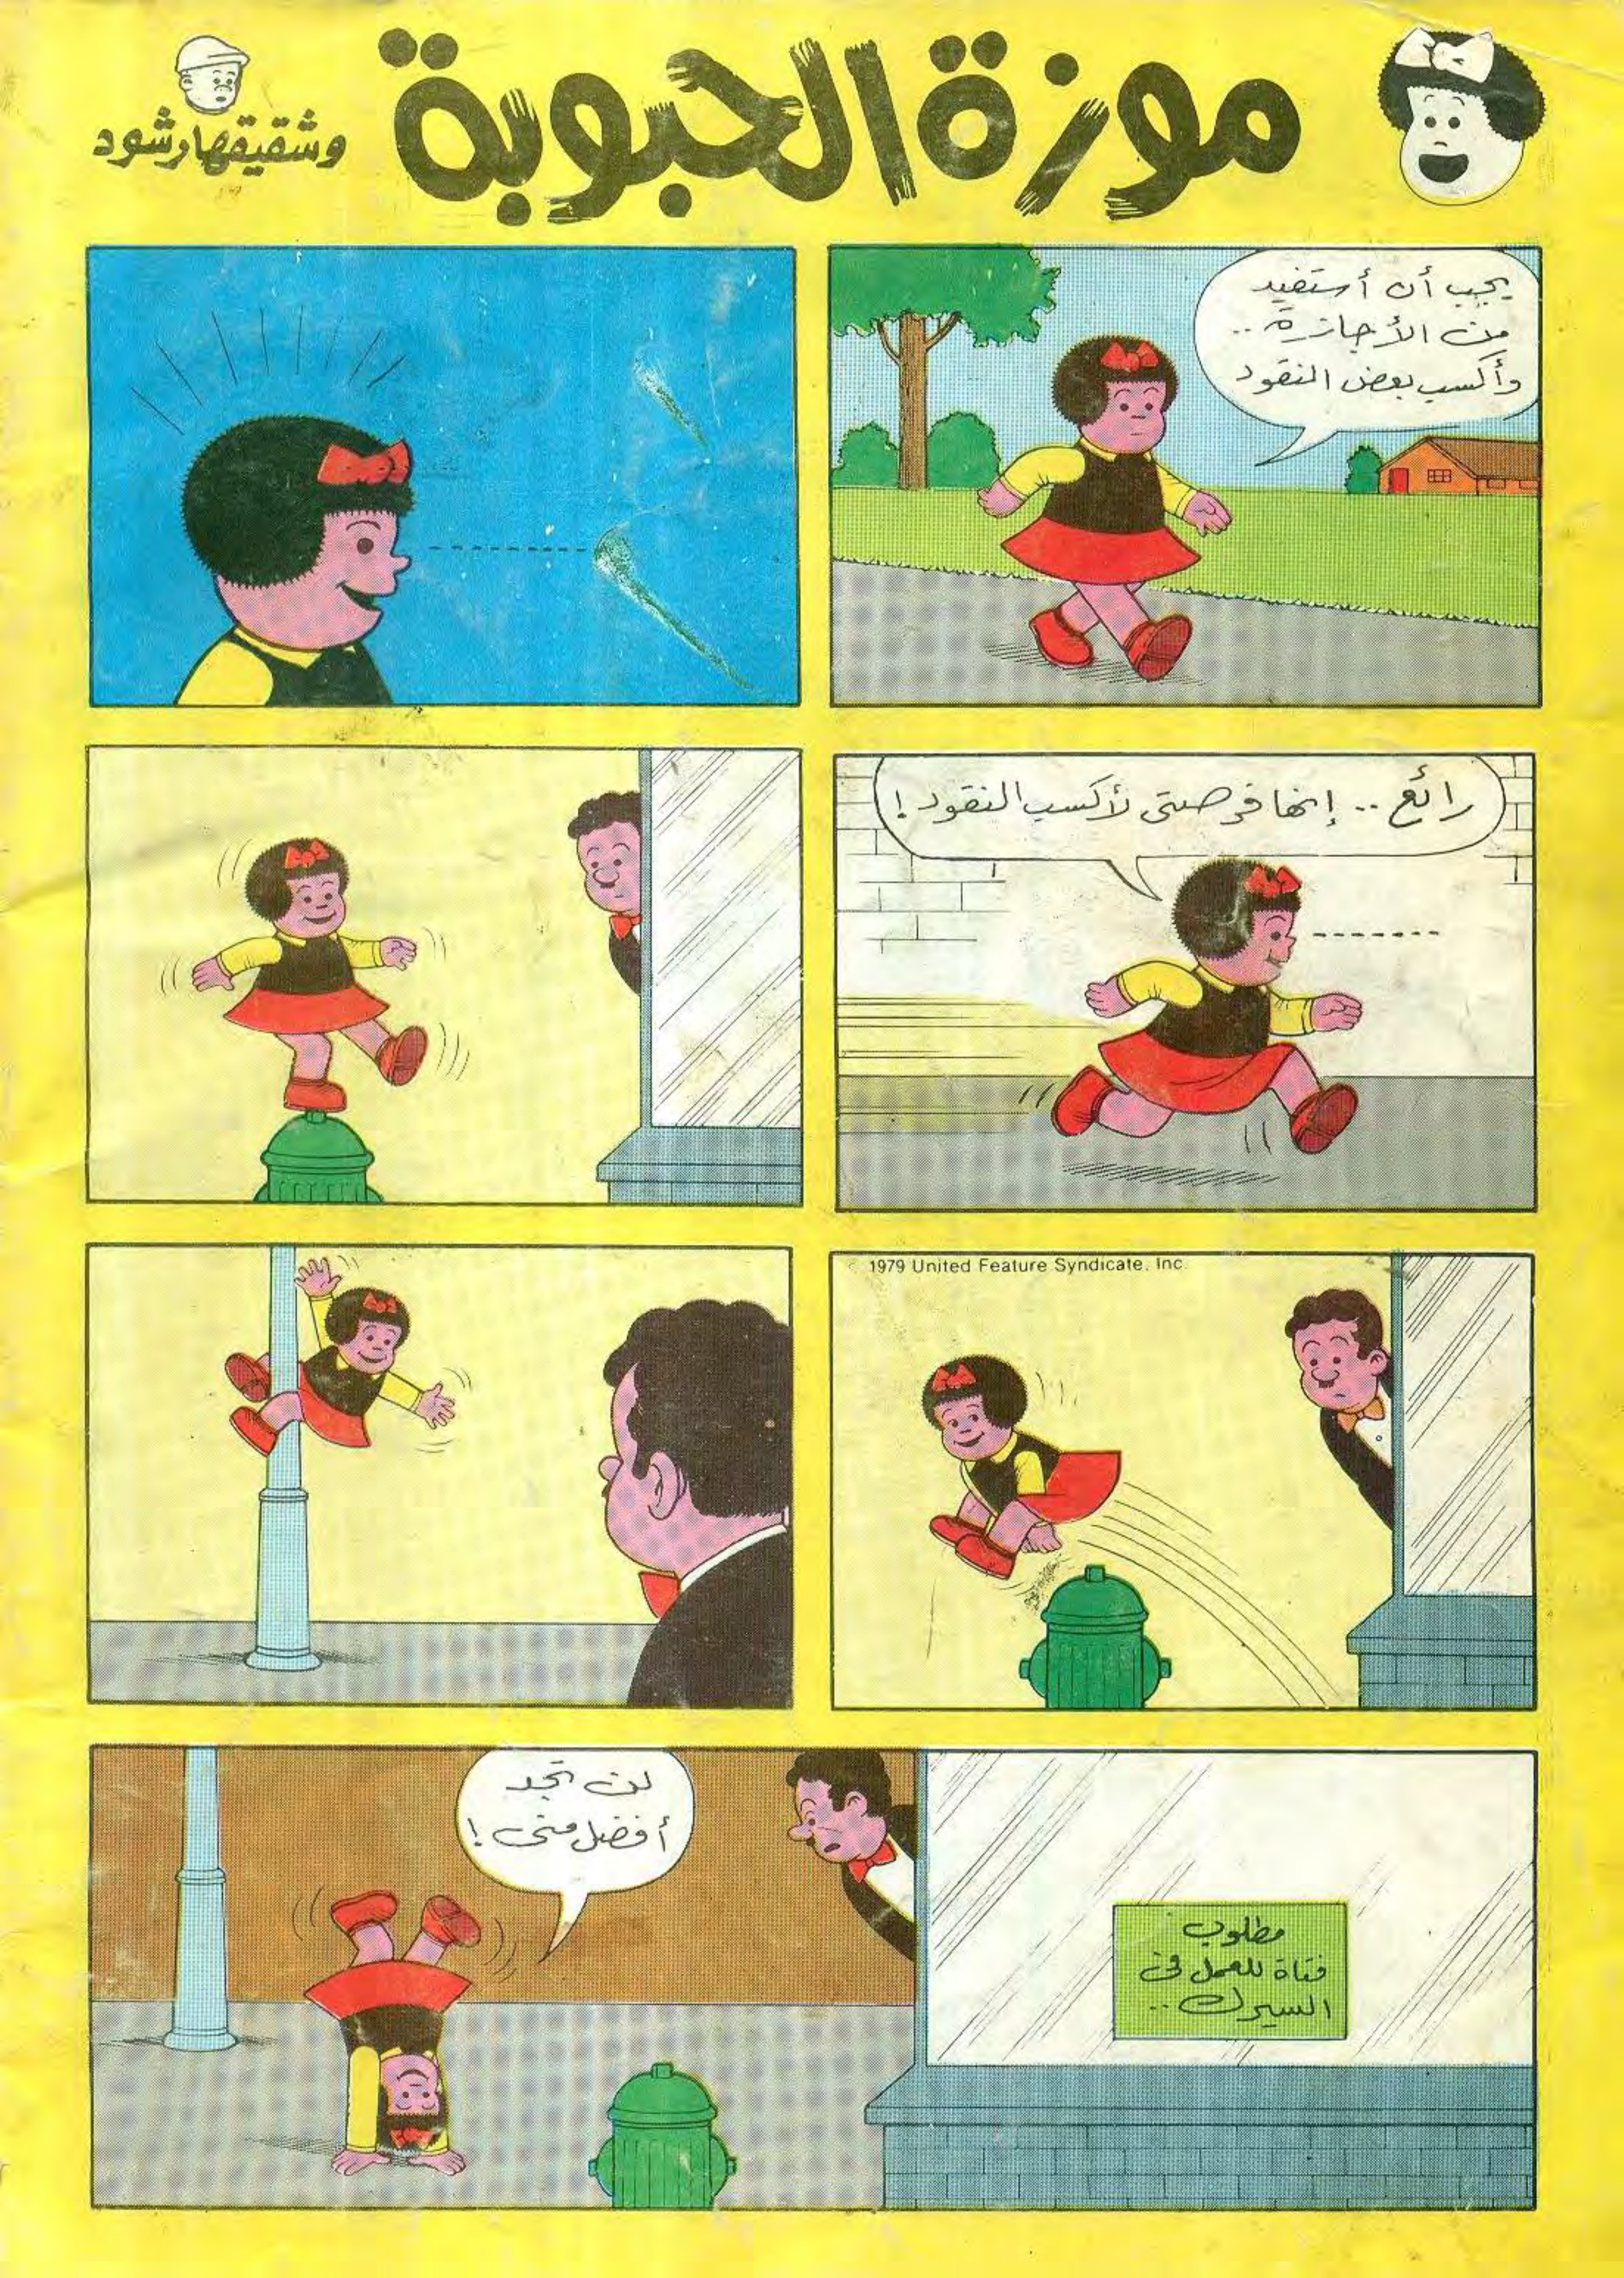 موزة الحبوبة
وشقيقها رشود
يجب أن أستفيد
من الأجازة ..
وأكسب بعض النقود
رائع .. إنها فرصتى لأكسب النقود !
1979 United Feature Syndicate, Inc.
لن تجد
أفضل منى !
مطلوب
فتاة للعمل فى
السيرك ..